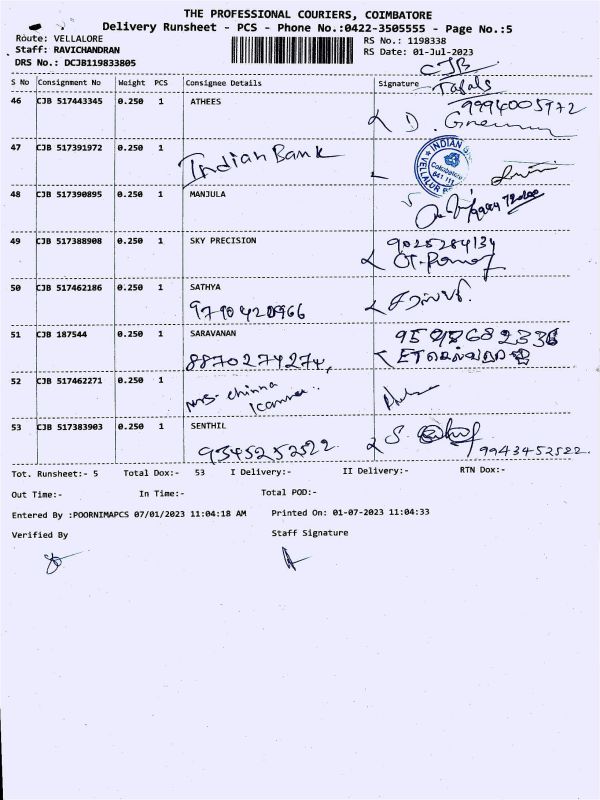 THE PROFESSIONAL COURIERS, COIMBATORE
Delivery Runsheet - PCS - Phone No.:0422-3505555 - Page No.:5
Route: VELLALORE
RS No.: 1198338
Staff: RAVICHANDRAN
RS Date: 01-Jul-2023
DRS No.: DCJB119833805
CJB
S No Consignment No Weight PCS Consignee Details Signature
46 CJB 517443345 0.250 1 ATHEES
9994005972
D.
47 CJB 517391972 0.250 1 Indian Bank
INDIAN
VELLALUR
Coimbatore
641 111
48 CJB 517390895 0.250 1 MANJULA
49 CJB 517388908 0.250 1 SKY PRECISION 9025284134
50 CJB 517462186 0.250 1 SATHYA
9790420966
51 CJB 187544 0.250 1 SARAVANAN
8870274274,
52 CJB 517462271 0.250 1 mrs- chinna
53 CJB 517383903 0.250 1 SENTHIL S.
9345252522 9943452522.
Tot. Runsheet:- 5 Total Dox:- 53 I Delivery:- II Delivery:- RTN Dox:-
Out Time:- In Time:- Total POD:-
Entered By :POORNIMAPCS 07/01/2023 11:04:18 AM Printed On: 01-07-2023 11:04:33
Verified By Staff Signature